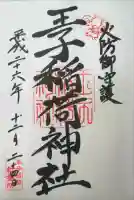 火防御守護
王子稲荷神社
平成二十六年 十二月二十四日